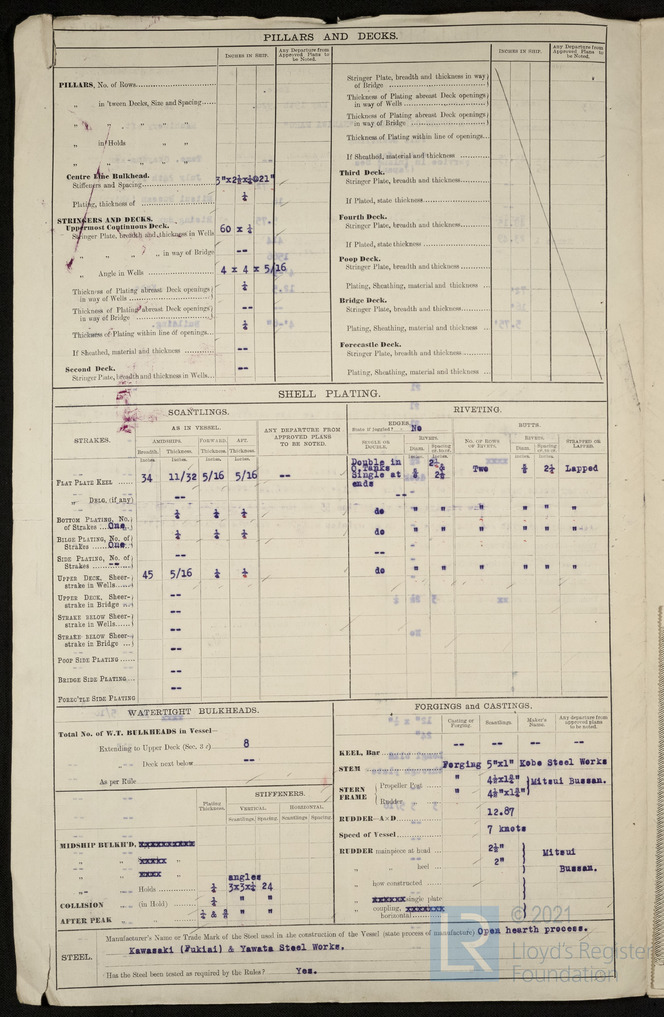 PILLARS AND DECKS.
INCHES IN SHIP.
Any Departure from Approved Plans to be Noted.
INCHES IN SHIP.
Any Departure from Approved Plans to be Noted.
PILLARS, No. of Rows
„ in 'tween Decks, Size and Spacing
„ „ „ „
„ in Holds „ „
„ „ „ „
Centre Line Bulkhead.
Stiffeners and Spacing 3"x2½x¼@21"
Plating, thickness of ¼
STRINGERS AND DECKS.
Uppermost Continuous Deck.
Stringer Plate, breadth and thickness in Wells 60 x ¼
„ „ „ „ in way of Bridge --
„ Angle in Wells 4 x 4 x 5/16
Thickness of Plating abreast Deck openings in way of Wells ¼
Thickness of Plating abreast Deck openings in way of Bridge --
Thickness of Plating within line of openings ¼
If Sheathed, material and thickness --
Second Deck.
Stringer Plate, breadth and thickness in Wells --
Stringer Plate, breadth and thickness in way of Bridge
Thickness of Plating abreast Deck openings in way of Wells
Thickness of Plating abreast Deck openings in way of Bridge
Thickness of Plating within line of openings
If Sheathed, material and thickness
Third Deck.
Stringer Plate, breadth and thickness
If Plated, state thickness
Fourth Deck.
Stringer Plate, breadth and thickness
If Plated, state thickness
Poop Deck.
Stringer Plate, breadth and thickness
Plating, Sheathing, material and thickness
Bridge Deck.
Stringer Plate, breadth and thickness
Plating, Sheathing, material and thickness
Forecastle Deck.
Stringer Plate, breadth and thickness
Plating, Sheathing, material and thickness
SHELL PLATING.
SCANTLINGS.
RIVETING.
STRAKES.
AS IN VESSEL.
AMIDSHIPS. FORWARD. AFT.
Breadth. Thickness. Thickness. Thickness.
Inches. Inches. Inches. Inches.
ANY DEPARTURE FROM APPROVED PLANS TO BE NOTED.
EDGES.
State if joggled? No
SINGLE OR DOUBLE.
RIVETS.
Diam. Spacing
BUTTS.
NO. OF ROWS OF RIVETS.
RIVETS.
Diam. Spacing
STRAPPED OR LAPPED.
FLAT PLATE KEEL 34 11/32 5/16 5/16 -- Double in O.Tanks Single at ends Two Lapped
„ DBLG. (if any) -- --
BOTTOM PLATING, No. of Strakes One ¼ ¼ ¼ do " " " " " "
BILGE PLATING, No. of Strakes One ¼ ¼ ¼ do " " " " " "
SIDE PLATING, No. of Strakes -- -- --
UPPER DECK, Sheerstrake in Wells 45 5/16 ¼ ¼ do " " " " " "
UPPER DECK, Sheerstrake in Bridge --
STRAKE BELOW Sheerstrake in Wells --
STRAKE BELOW Sheerstrake in Bridge --
POOP SIDE PLATING --
BRIDGE SIDE PLATING --
FOREC'TLE SIDE PLATING --
WATERTIGHT BULKHEADS.
Total No. of W.T. BULKHEADS in Vessel—
Extending to Upper Deck (Sec. 3 c) 8
„ Deck next below --
As per Rule
Plating Thickness.
STIFFENERS.
VERTICAL. HORIZONTAL.
Scantlings Spacing. Scantlings Spacing.
MIDSHIP BULKH'D,
angles
„ Holds ¼ 3x3x¼ 24
COLLISION (in Hold) ¼ " "
AFTER PEAK " "
FORGINGS and CASTINGS.
Casting or Forging.
Scantlings.
Maker's Name.
Any departure from approved plans to be noted.
KEEL, Bar -- -- -- --
STEM Forging 5"x1" Kobe Steel Works
STERN FRAME
Propeller Post " Mitsui Bussan.
Rudder "
RUDDER—A×D 12.87
Speed of Vessel 7 knots
RUDDER mainpiece at head 2½" Mitsui
„ „ heel 2" Bussan.
„ how constructed
„ single plate
„ coupling, horizontal
STEEL.
Manufacturer's Name or Trade Mark of the Steel used in the construction of the Vessel (state process of manufacture) Open hearth process.
Kawasaki (Fukiai) & Yawata Steel Works.
Has the Steel been tested as required by the Rules? Yes.
LR
© 2021
Lloyd's Register
Foundation